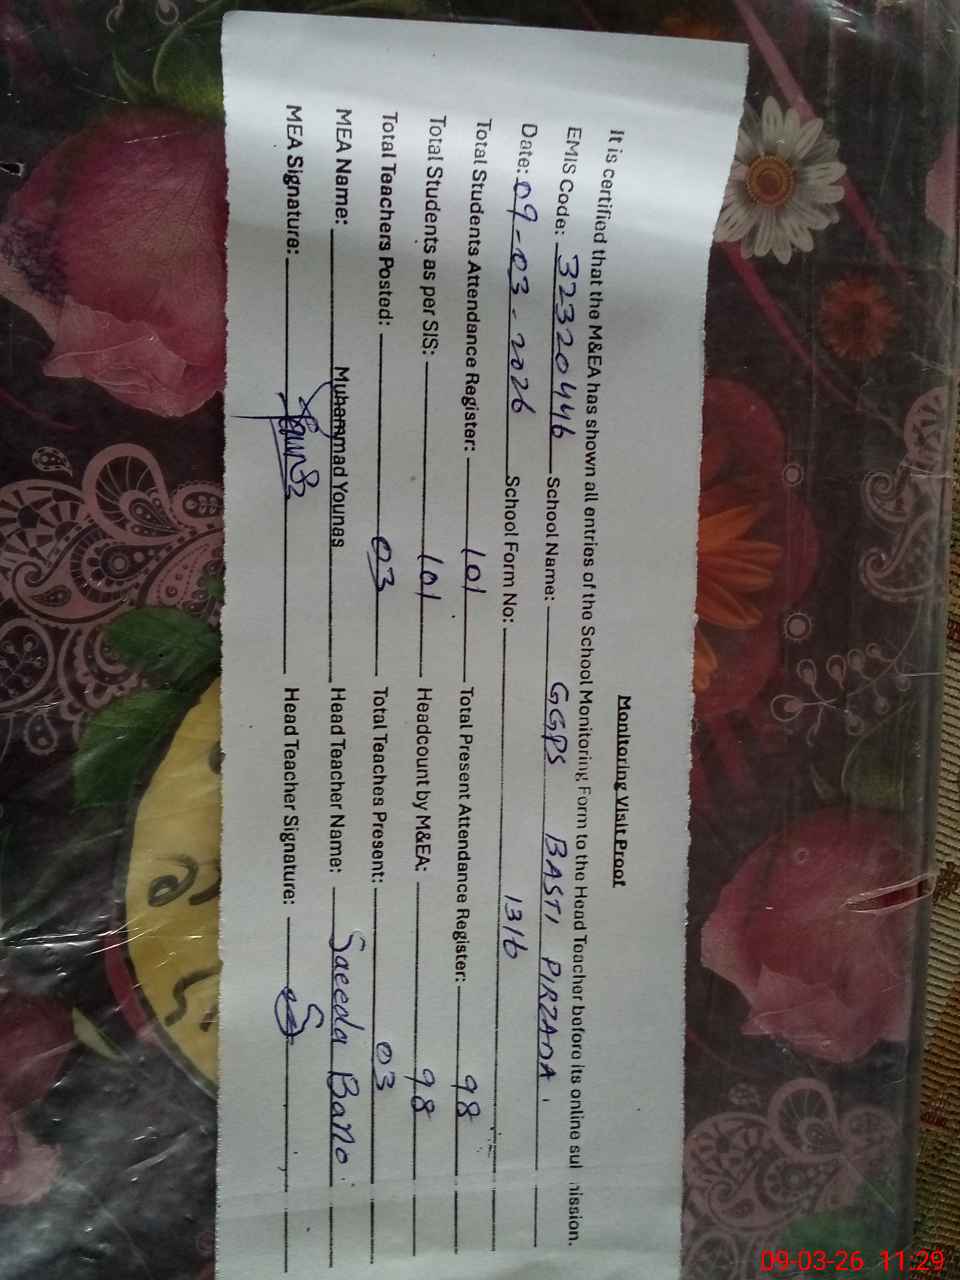 Monitoring Visit Proof
It is certified that the M&EA has shown all entries of the School Monitoring Form to the Head Teacher before its online sul nission.
EMIS Code: 32320446 School Name: GGPS BASTI PIRZADA
Date: 09-03-2026 School Form No: 1316
Total Students Attendance Register: 101 Total Present Attendance Register: 98
Total Students as per SIS: 101 Headcount by M&EA: 98
Total Teachers Posted: 03 Total Teaches Present: 03
MEA Name: Muhammad Younas Head Teacher Name: Saeeda Bano
MEA Signature: Head Teacher Signature:
09-03-26 11:29